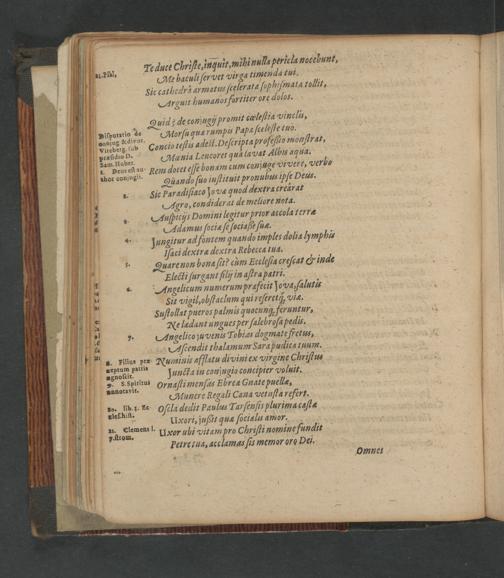 Te duce Christe, inquit, mihi nulla pericla nocebunt,
21. Psal,
Me baculi servet virga timenda tui.
Sic cathedrâ armatus scelerata sophismata tollit,
Arguit humanos fortiter ore dolos.
Quid? de conjugij promit cœlestia vinclis,
Disputatio de
conjug & divor.
Witeberg. sub
præsidio D.
Sam. Huber.
1. Deus est au-
thor conjugii.
Morsu qua rumpis Papa sceleste tuo.
Concio testis adest. Descripta professio monstrat,
Mania Leucoret quà lavat Albis aqua.
Rem docet esse bonam cum conjuge vivere, verbo
Quando suo instituit pronubus ipse Deus.
2. Sic Paradisiaco Jova quod dextra creârat
Agro, condiderat de meliore nota.
3. Auspicijs Domini legitur prior accola terræ
Adamus sociæ se sociasse suæ.
4. Jungitur ad fontem quando imples dolia lymphis
Isaci dextra dextra Rebecca tua.
5. Quare non bona sit? cùm Ecclesia crescat & inde
Electi surgant filij in astra patri.
6. Angelicum numerum præfecit Jova, salutis
Sit vigil, obstaclum qui reseretq́, viæ.
Sustollat pueros palmis quocunq, feruntur,
Ne ladant ungues per salebrosa pedis.
7. Angelico juvenis Tobias dogmate fretus,
Ascendit thalamum Sara pudica tuum.
8. Filius præ-
ceptum patris
agnoscit.
Numinis afflatu divini ex virgine Christus
Juncta in conjugio concipier voluit.
9. S. Spiritus
annotavit.
Ornasti mensas Ebrea Gnate puellæ,
Munere Regali Cana vetusta refert.
10. lib. 3. Ec
cles. hist.
Oscla dedit Paulus Tarsensis plurima castæ
Uxori, jussit quæ socialis amor.
11. Clemens l.
7. strom.
Uxor ubi vitam pro Christi nomine fundit
Petre tua, acclamas sis memor oro Dei.
Omnes